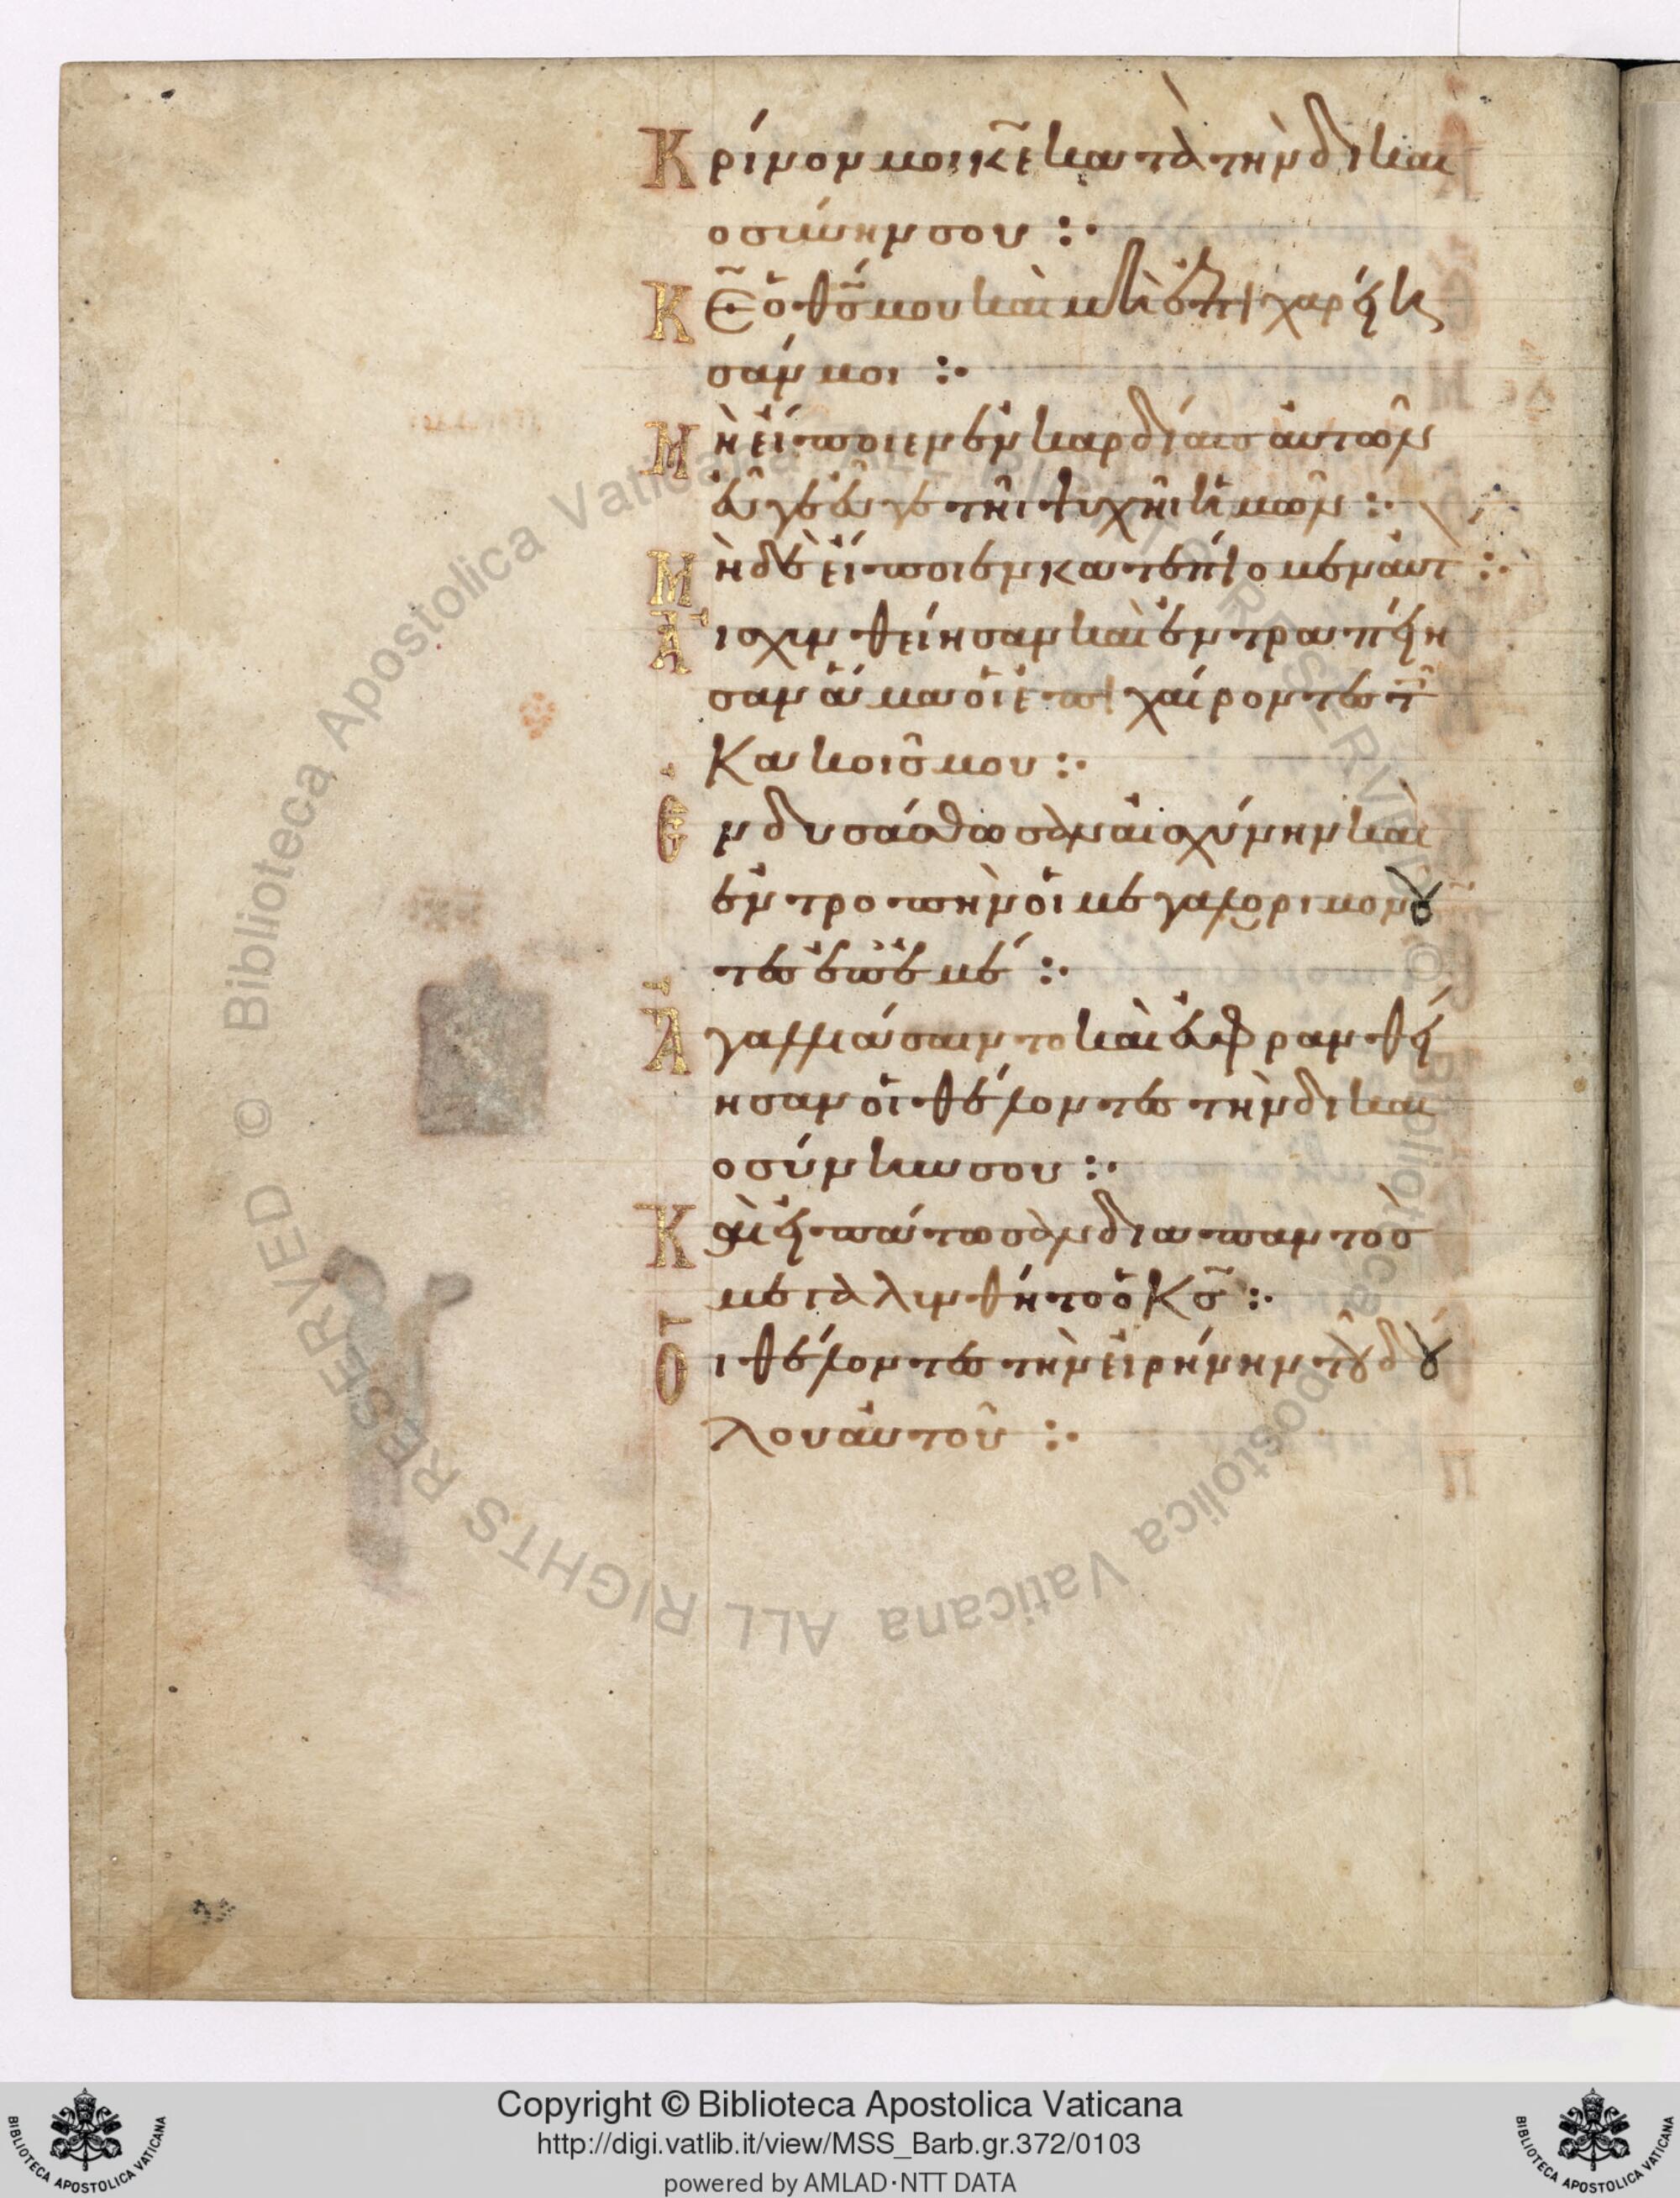 Κρίνον μοι κ̅ε̅ κατὰ τὴν δικαι
οσύνην σου :·
Κ̅Ε̅ ὁ θ̅ς̅ μου καὶ μὴ ἐπιχαρείη
σάν μοι :·
Μὴ εἴποιεν ἐν καρδίαις αὐτῶν
εὖγε εὖγε τῆι ψυχῆι ἡμῶν :·
Μηδὲ εἴποιεν κατεπίομεν αὐτ :·
Αἰσχυνθείησαν καὶ ἐντραπείη
σαν ἅμα οἱ ἐπιχαίροντες τ
κακοῖς μου :·
Ἐνδυσάσθωσαν αἰσχύνην καὶ
ἐντροπὴν οἱ μεγαλορημονοῦ
τες ἐπ' ἐμέ :·
Ἀγαλλιάσαιντο καὶ εὐφρανθεί
ησαν οἱ θέλοντες τὴν δικαι
οσύνην σου :·
Καὶ εἰπάτωσαν διαπαντὸς
μεγαλυνθήτο ὁ κ̅ς̅ :·
Οἱ θέλοντες τὴν εἰρήνην τοῦ δού
λου αὐτοῦ :·
Copyright © Biblioteca Apostolica Vaticana
http://digi.vatlib.it/view/MSS_Barb.gr.372/0103
powered by AMLAD·NTT DATA
BIBLIOTECA APOSTOLICA VATICANA
BIBLIOTECA APOSTOLICA VATICANA
© Biblioteca Apostolica Vaticana ALL RIGHTS RESERVED
© Biblioteca Apostolica Vaticana ALL RIGHTS RESERVED